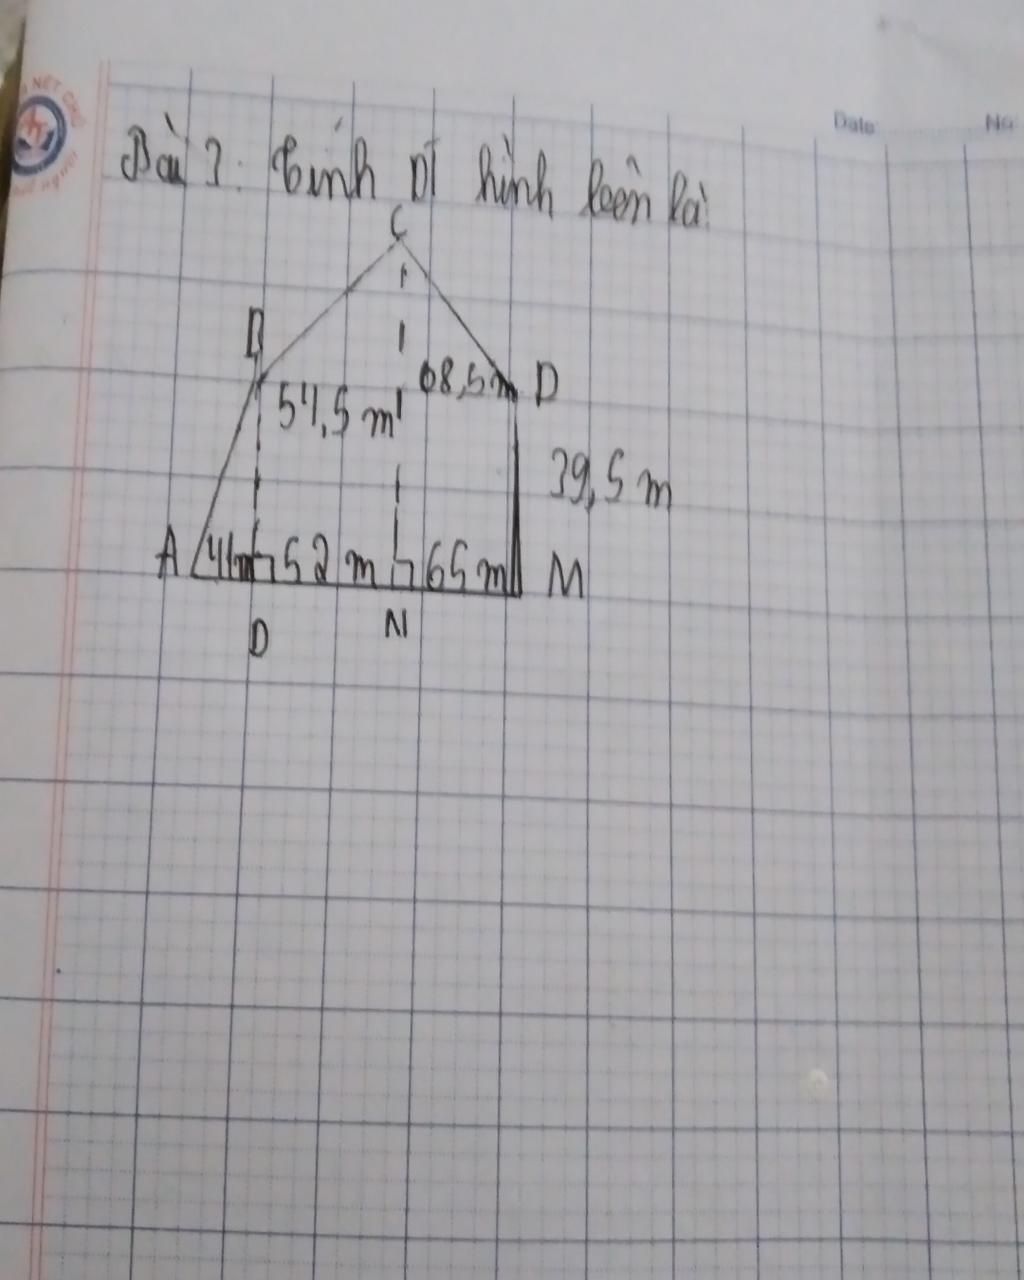 Date: No:
Bài 3: Tính DT hình bên là:
C
B
54,5 m
68,5m D
39,5 m
A 41m 52 m 65 m M
D N